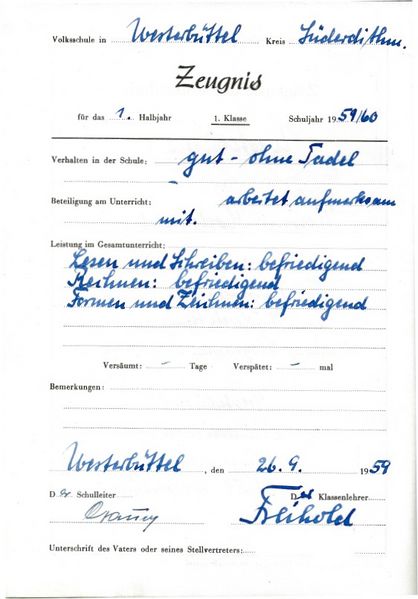 Volksschule in Westerbüttel Kreis Süderdithm.
Zeugnis
für das 1. Halbjahr 1. Klasse Schuljahr 1959/60
Verhalten in der Schule: gut - ohne Tadel
Beteiligung am Unterricht: arbeitet aufmerksam
mit.
Leistung im Gesamtunterricht:
Lesen und Schreiben: befriedigend
Rechnen: befriedigend
Formen und Zeichnen: befriedigend
Versäumt: - Tage Verspätet: - mal
Bemerkungen:
Westerbüttel, den 26. 9. 1959
Der Schulleiter Der Klassenlehrer
Freihold
Unterschrift des Vaters oder seines Stellvertreters: